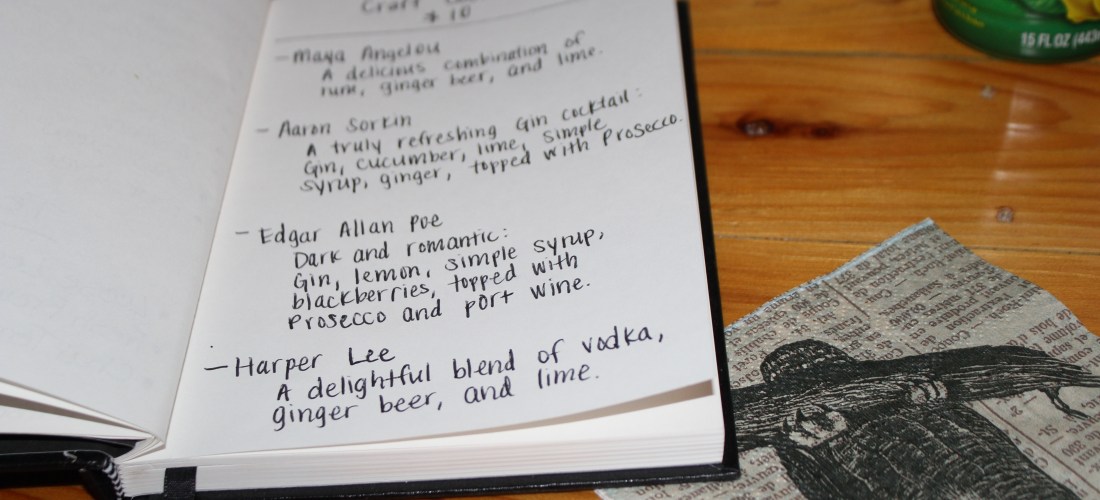 Craft
$10
- Maya Angelou
A delicious combination of
rum, ginger beer, and lime.
- Aaron Sorkin
A truly refreshing Gin cocktail:
Gin, cucumber, lime, simple
syrup, ginger, topped with Prosecco.
- Edgar Allan Poe
Dark and romantic:
Gin, lemon, simple syrup,
blackberries, topped with
Prosecco and port wine.
- Harper Lee
A delightful blend of vodka,
ginger beer, and lime.
15 FL OZ (443